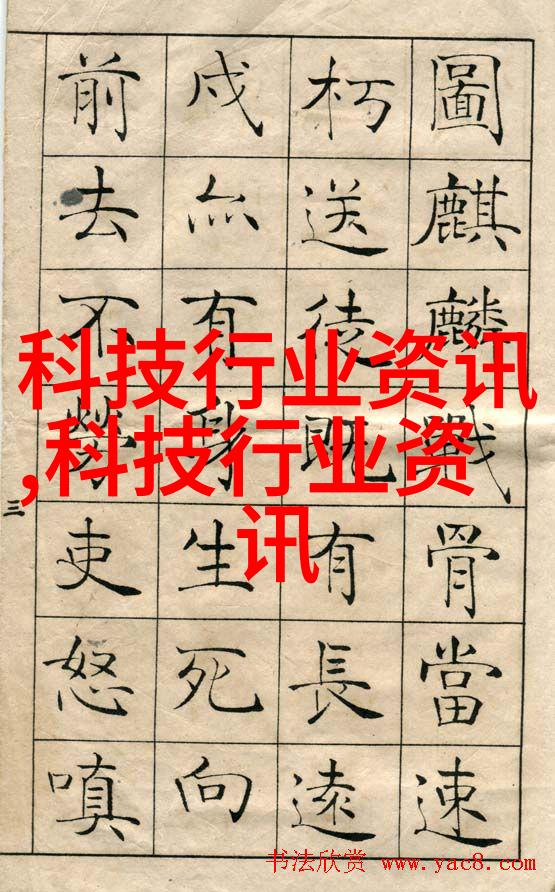 圖麒麟戰骨當速
朽送徒既有長遠
戍亦有身生死向
前去不勞吏怒嗔
三
科技行业资讯
,科技行业资
讯
书法欣赏 www.yac8.com